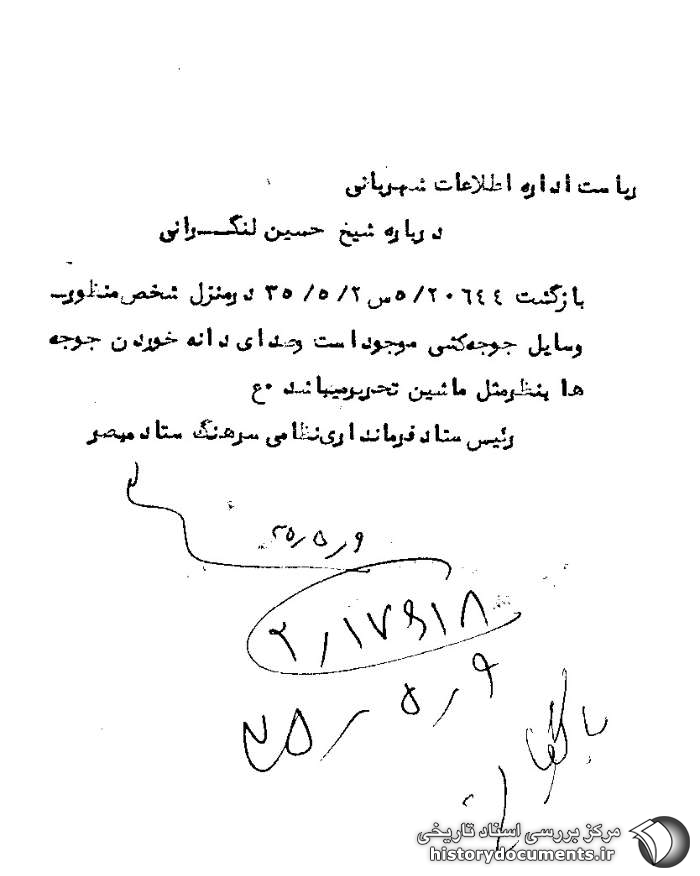 ریاست اداره اطلاعات شهربانی
درباره شیخ حسین لنگـــرانی
بازگشت ۵/۲۰۶۴۴س ۳۵/۵/۲ درمنزل شخص منظور
وسایل جوجه‌کشی موجود است وصدای دانه خوردن جوجه
ها بنظر مثل ماشین تحریر میباشد ۰ع
رئیس ستاد فرمانداری نظامی سرهنگ ستاد مبصر
۳۵٫۵٫۹
۲٫۱۷۹۱۸
۳۵٫۵٫۹
مرکز بررسی اسناد تاریخی
historydocuments.ir